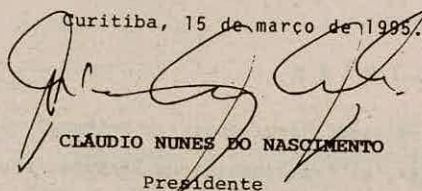 Curitiba, 15 de março de 1995.
CLÁUDIO NUNES DO NASCIMENTO
Presidente